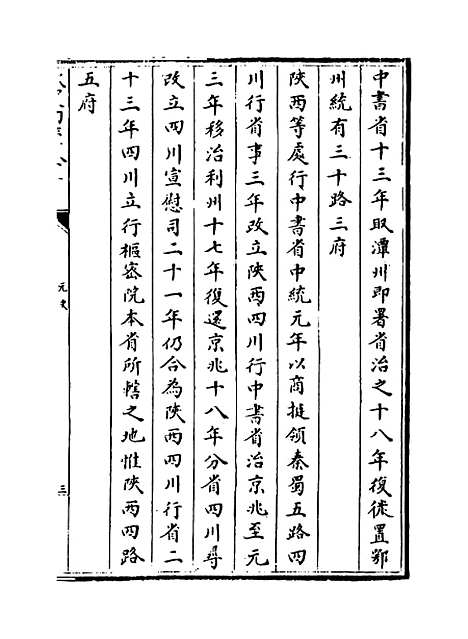 中書省十三年取潭州即署省治之十八年復徙置鄂
州統有三十路三府
陜西等處行中書省中統元年以商挺領秦蜀五路四
川行省事三年改立陜西四川行中書省治京兆至元
三年移治利州十七年復還京兆十八年分省四川尋
改立四川宣慰司二十一年仍合為陜西四川行省二
十三年四川立行樞密院本省所轄之地惟陜西四路
五府
元史
三